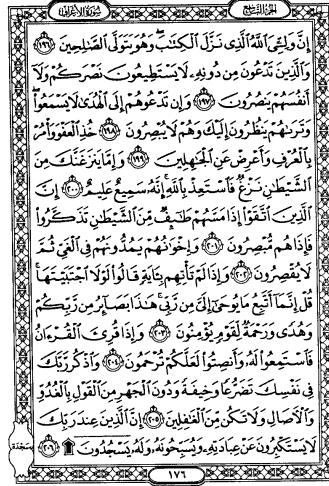 الجزء التاسع
سورة الأعراف
إِنَّ وَلِـِّۧيَ ٱللَّهُ ٱلَّذِى نَزَّلَ ٱلْكِتَٰبَ وَهُوَ يَتَوَلَّى ٱلصَّٰلِحِينَ ۝١٩٦
وَٱلَّذِينَ تَدْعُونَ مِن دُونِهِۦ لَا يَسْتَطِيعُونَ نَصْرَكُمْ وَلَآ
أَنفُسَهُمْ يَنصُرُونَ ۝١٩٧ وَإِن تَدْعُوهُمْ إِلَى ٱلْهُدَىٰ لَا يَسْمَعُوا۟
وَتَرَىٰهُمْ يَنظُرُونَ إِلَيْكَ وَهُمْ لَا يُبْصِرُونَ ۝١٩٨ خُذِ ٱلْعَفْوَ وَأْمُرْ
بِٱلْعُرْفِ وَأَعْرِضْ عَنِ ٱلْجَٰهِلِينَ ۝١٩٩ وَإِمَّا يَنزَغَنَّكَ مِنَ
ٱلشَّيْطَٰنِ نَزْغٌ فَٱسْتَعِذْ بِٱللَّهِ إِنَّهُۥ سَمِيعٌ عَلِيمٌ ۝٢٠٠ إِنَّ
ٱلَّذِينَ ٱتَّقَوْا۟ إِذَا مَسَّهُمْ طَٰٓئِفٌ مِّنَ ٱلشَّيْطَٰنِ تَذَكَّرُوا۟
فَإِذَا هُم مُّبْصِرُونَ ۝٢٠١ وَإِخْوَٰنُهُمْ يَمُدُّونَهُمْ فِى ٱلْغَىِّ ثُمَّ
لَا يُقْصِرُونَ ۝٢٠٢ وَإِذَا لَمْ تَأْتِهِم بِـَٔايَةٍ قَالُوا۟ لَوْلَا ٱجْتَبَيْتَهَا
قُلْ إِنَّمَآ أَتَّبِعُ مَا يُوحَىٰٓ إِلَىَّ مِن رَّبِّى هَٰذَا بَصَآئِرُ مِن رَّبِّكُمْ
وَهُدًى وَرَحْمَةٌ لِّقَوْمٍ يُؤْمِنُونَ ۝٢٠٣ وَإِذَا قُرِئَ ٱلْقُرْءَانُ
فَٱسْتَمِعُوا۟ لَهُۥ وَأَنصِتُوا۟ لَعَلَّكُمْ تُرْحَمُونَ ۝٢٠٤ وَٱذْكُر رَّبَّكَ
فِى نَفْسِكَ تَضَرُّعًا وَخِيفَةً وَدُونَ ٱلْجَهْرِ مِنَ ٱلْقَوْلِ بِٱلْغُدُوِّ
وَٱلْءَاصَالِ وَلَا تَكُن مِّنَ ٱلْغَٰفِلِينَ ۝٢٠٥ إِنَّ ٱلَّذِينَ عِندَ رَبِّكَ
لَا يَسْتَكْبِرُونَ عَنْ عِبَادَتِهِۦ وَيُسَبِّحُونَهُۥ وَلَهُۥ يَسْجُدُونَ ۩ ۝٢٠٦
سجدة
١٧٦